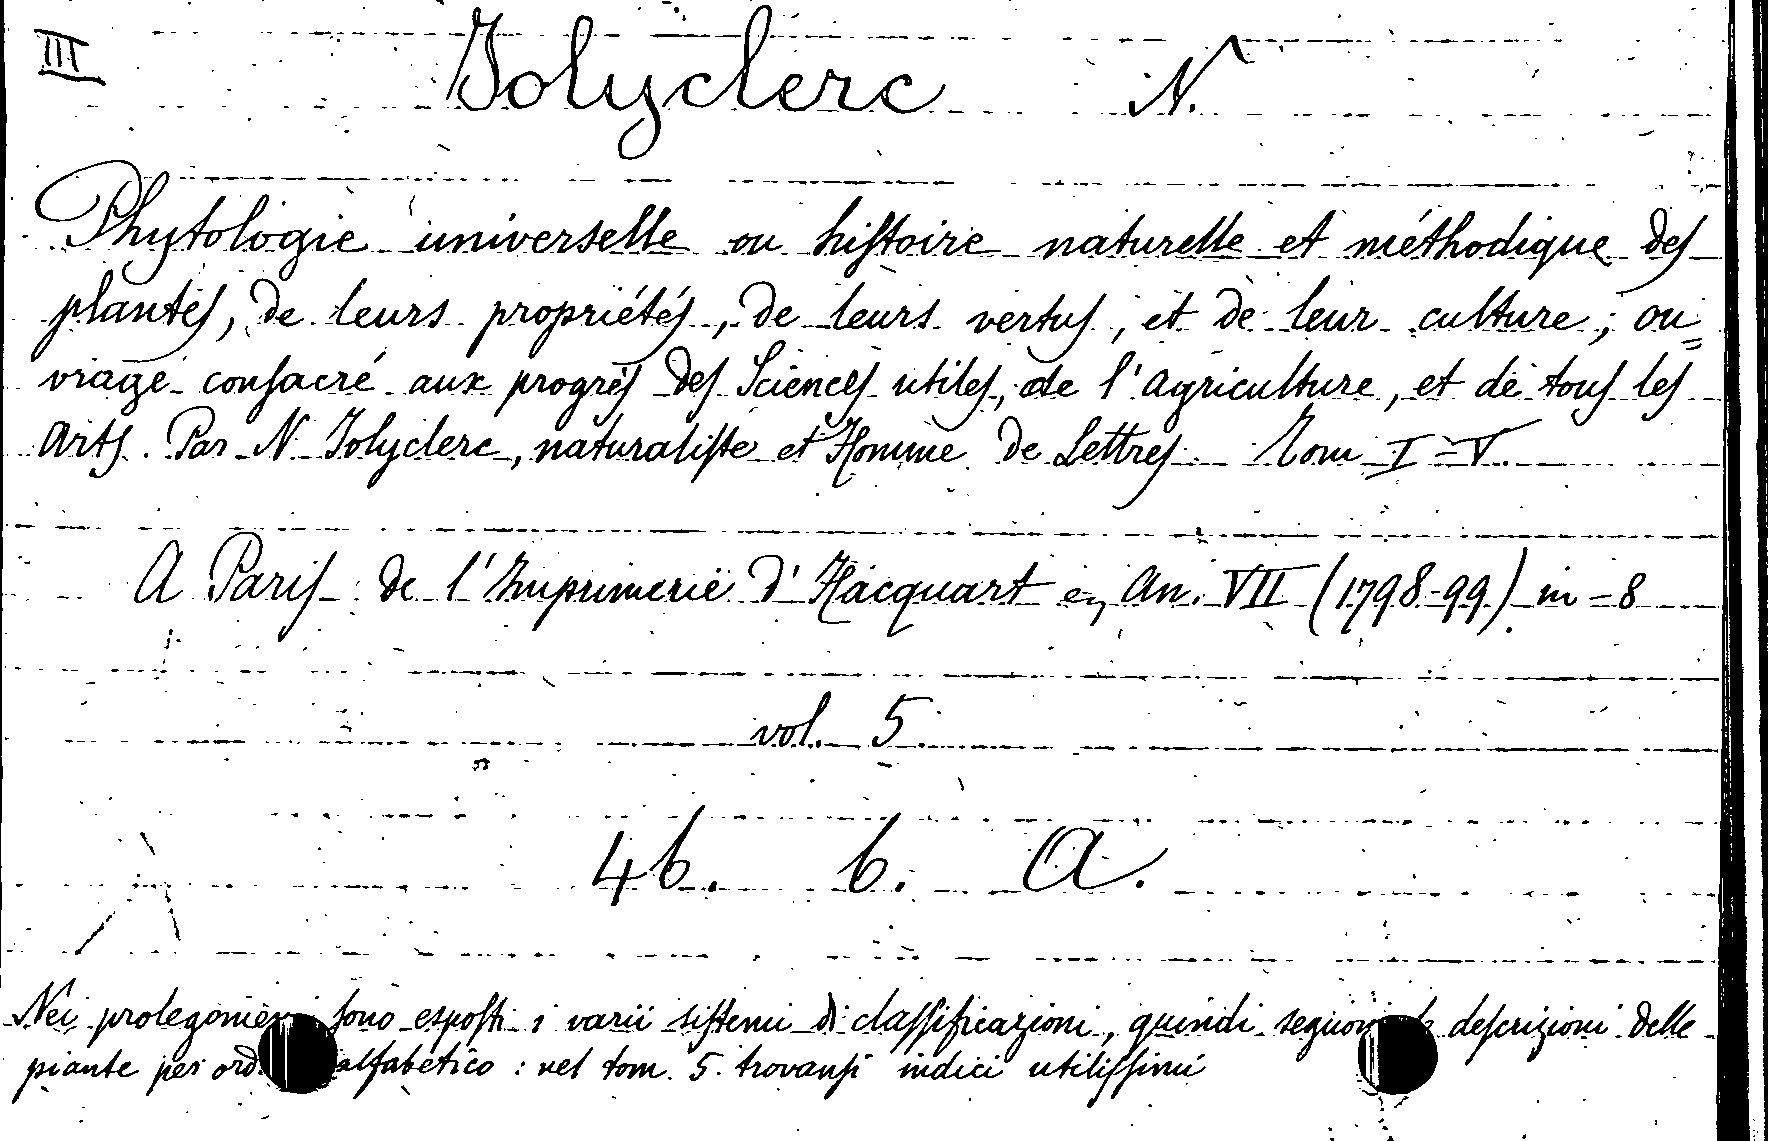 III
Jolyclerc N.
Phytologie universelle ou histoire naturelle et méthodique des
plantes, de leurs propriétés, de leurs vertus, et de leur culture; ou=
vrage consacré aux progrès des Sciences utiles, de l'agriculture, et de tous les
arts. Par N Jolyclerc, naturaliste et Homme de Lettres. Tom I-V.
A Paris de l'Imprimerie d'Hacquart en An. VII (1798-99) in-8
vol. 5
46. b. A.
Nei prolegomeni sono esposti i varii sistemi di classificazioni, quindi seguono le descrizioni delle
piante per alfabetico: nel tom. 5. trovansi indici utilissimi